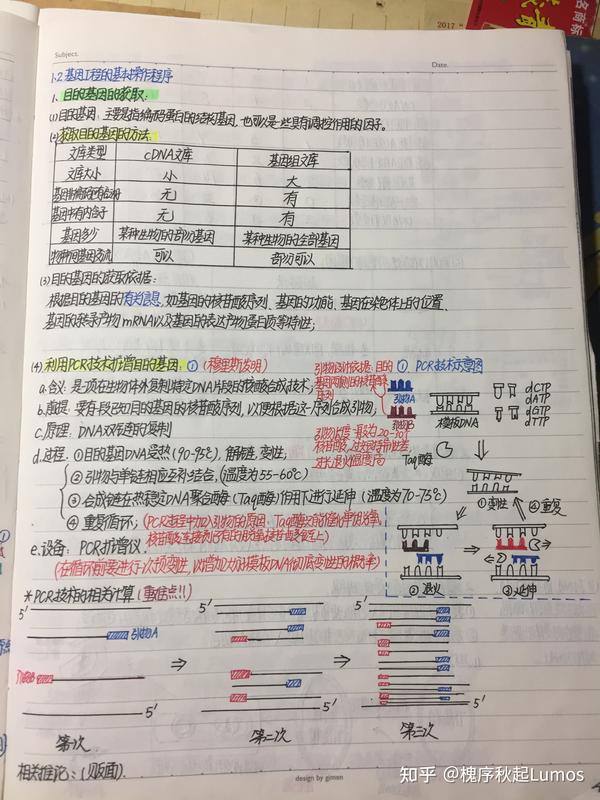 名商标
2017
Subject.
Date.
1.2 基因工程的基本操作程序
1. 目的基因的获取:
(1)目的基因:主要是指编码蛋白的结构基因,也可以是一些具有调控作用的因子。
(2)获取目的基因的方法:
文库类型 cDNA文库 基因组文库
文库大小 小 大
无 有
基因中有内含子 无 有
基因多少 某种生物的部分基因 某种生物的全部基因
物种间基因交流 可以 部分可以
(3)目的基因的获取依据:
根据目的基因的有关信息,如基因的核苷酸序列、基因的功能、基因在染色体上的位置、
基因的转录产物mRNA以及基因的表达产物蛋白质等特性;
(4)利用PCR技术扩增目的基因:① (穆里斯发明)
a.含义:是一项在生物体外复制特定DNA片段的核酸合成技术;
b.前提:要有一段已知目的基因的核苷酸序列,以便根据这一序列合成引物;
c.原理:DNA双链的复制
d.过程:①目的基因DNA受热(90-95℃),解解链,变性;
②引物与单链相应互补结合,(温度为55-60℃)
③合成链在热稳定DNA聚合酶(Taq酶)作用下进行延伸(温度为70-75℃)
④重复循环;(PCR过程中加入引物的原因:
e.设备:PCR扩增仪.
(在循环前要进行一次预变性,以增加大的模板DNA彻底变性的概率)
引物设计依据:目的
基因两侧的核苷酸
序列
引物长度一般为20-30个
核苷酸,
退火温度高
① PCR技术示意图
引物A
引物B
模板DNA
dCTP
dATP
dGTP
dTTP
Taq酶
①变性
④重复
②退火
③延伸
*PCR技术的相关计算(重难点!!)
5' 5' 5'
引物A
引物B
⇒ ⇒
5' 5' 5'
第一次 第二次 第三次
相关推论:(见贩面).
design by giman
知乎 @槐序秋起Lumos